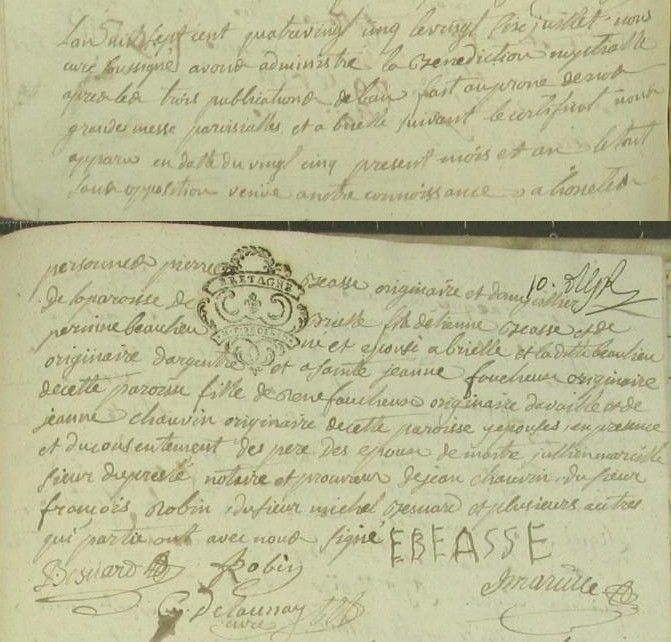 L'an mil sept cent quatre vingt cinq le vingt six juillet nous
curé soussigné avons administré la Benediction nuptialle
apres les trois publications de ban fait au prone de nos
grandes messe paroissialles et a brielle suivant le certificat nous
apparu en date du vingt cinq present mois et an le tout
sans opposition venüe a notre connoissance a honetes
personnes pierre Beasse originaire et domicillié
de la paroisse de Brielle fils detienne Beasse et de
BRETAGNE
perinne beaulieu et epousé a brielle et la ditte beaulieu
originaire dargentré et a jeanne foucheux originaire
de cette paroisse fille de rene foucheux originaire davaille et de
jeanne chauvin originaire de cette paroisse y epousés en presence
et du consentement des pere des epoux de maitre jullien marcille
sieur dupresté notaire et procureur de jean chauvin du sieur
francois Robin du sieur michel Besnard et plusieurs autres
qui partie ont avec nous signé EBEASSE
Besnard Robin Jmarcille
C. Delaunay
curé